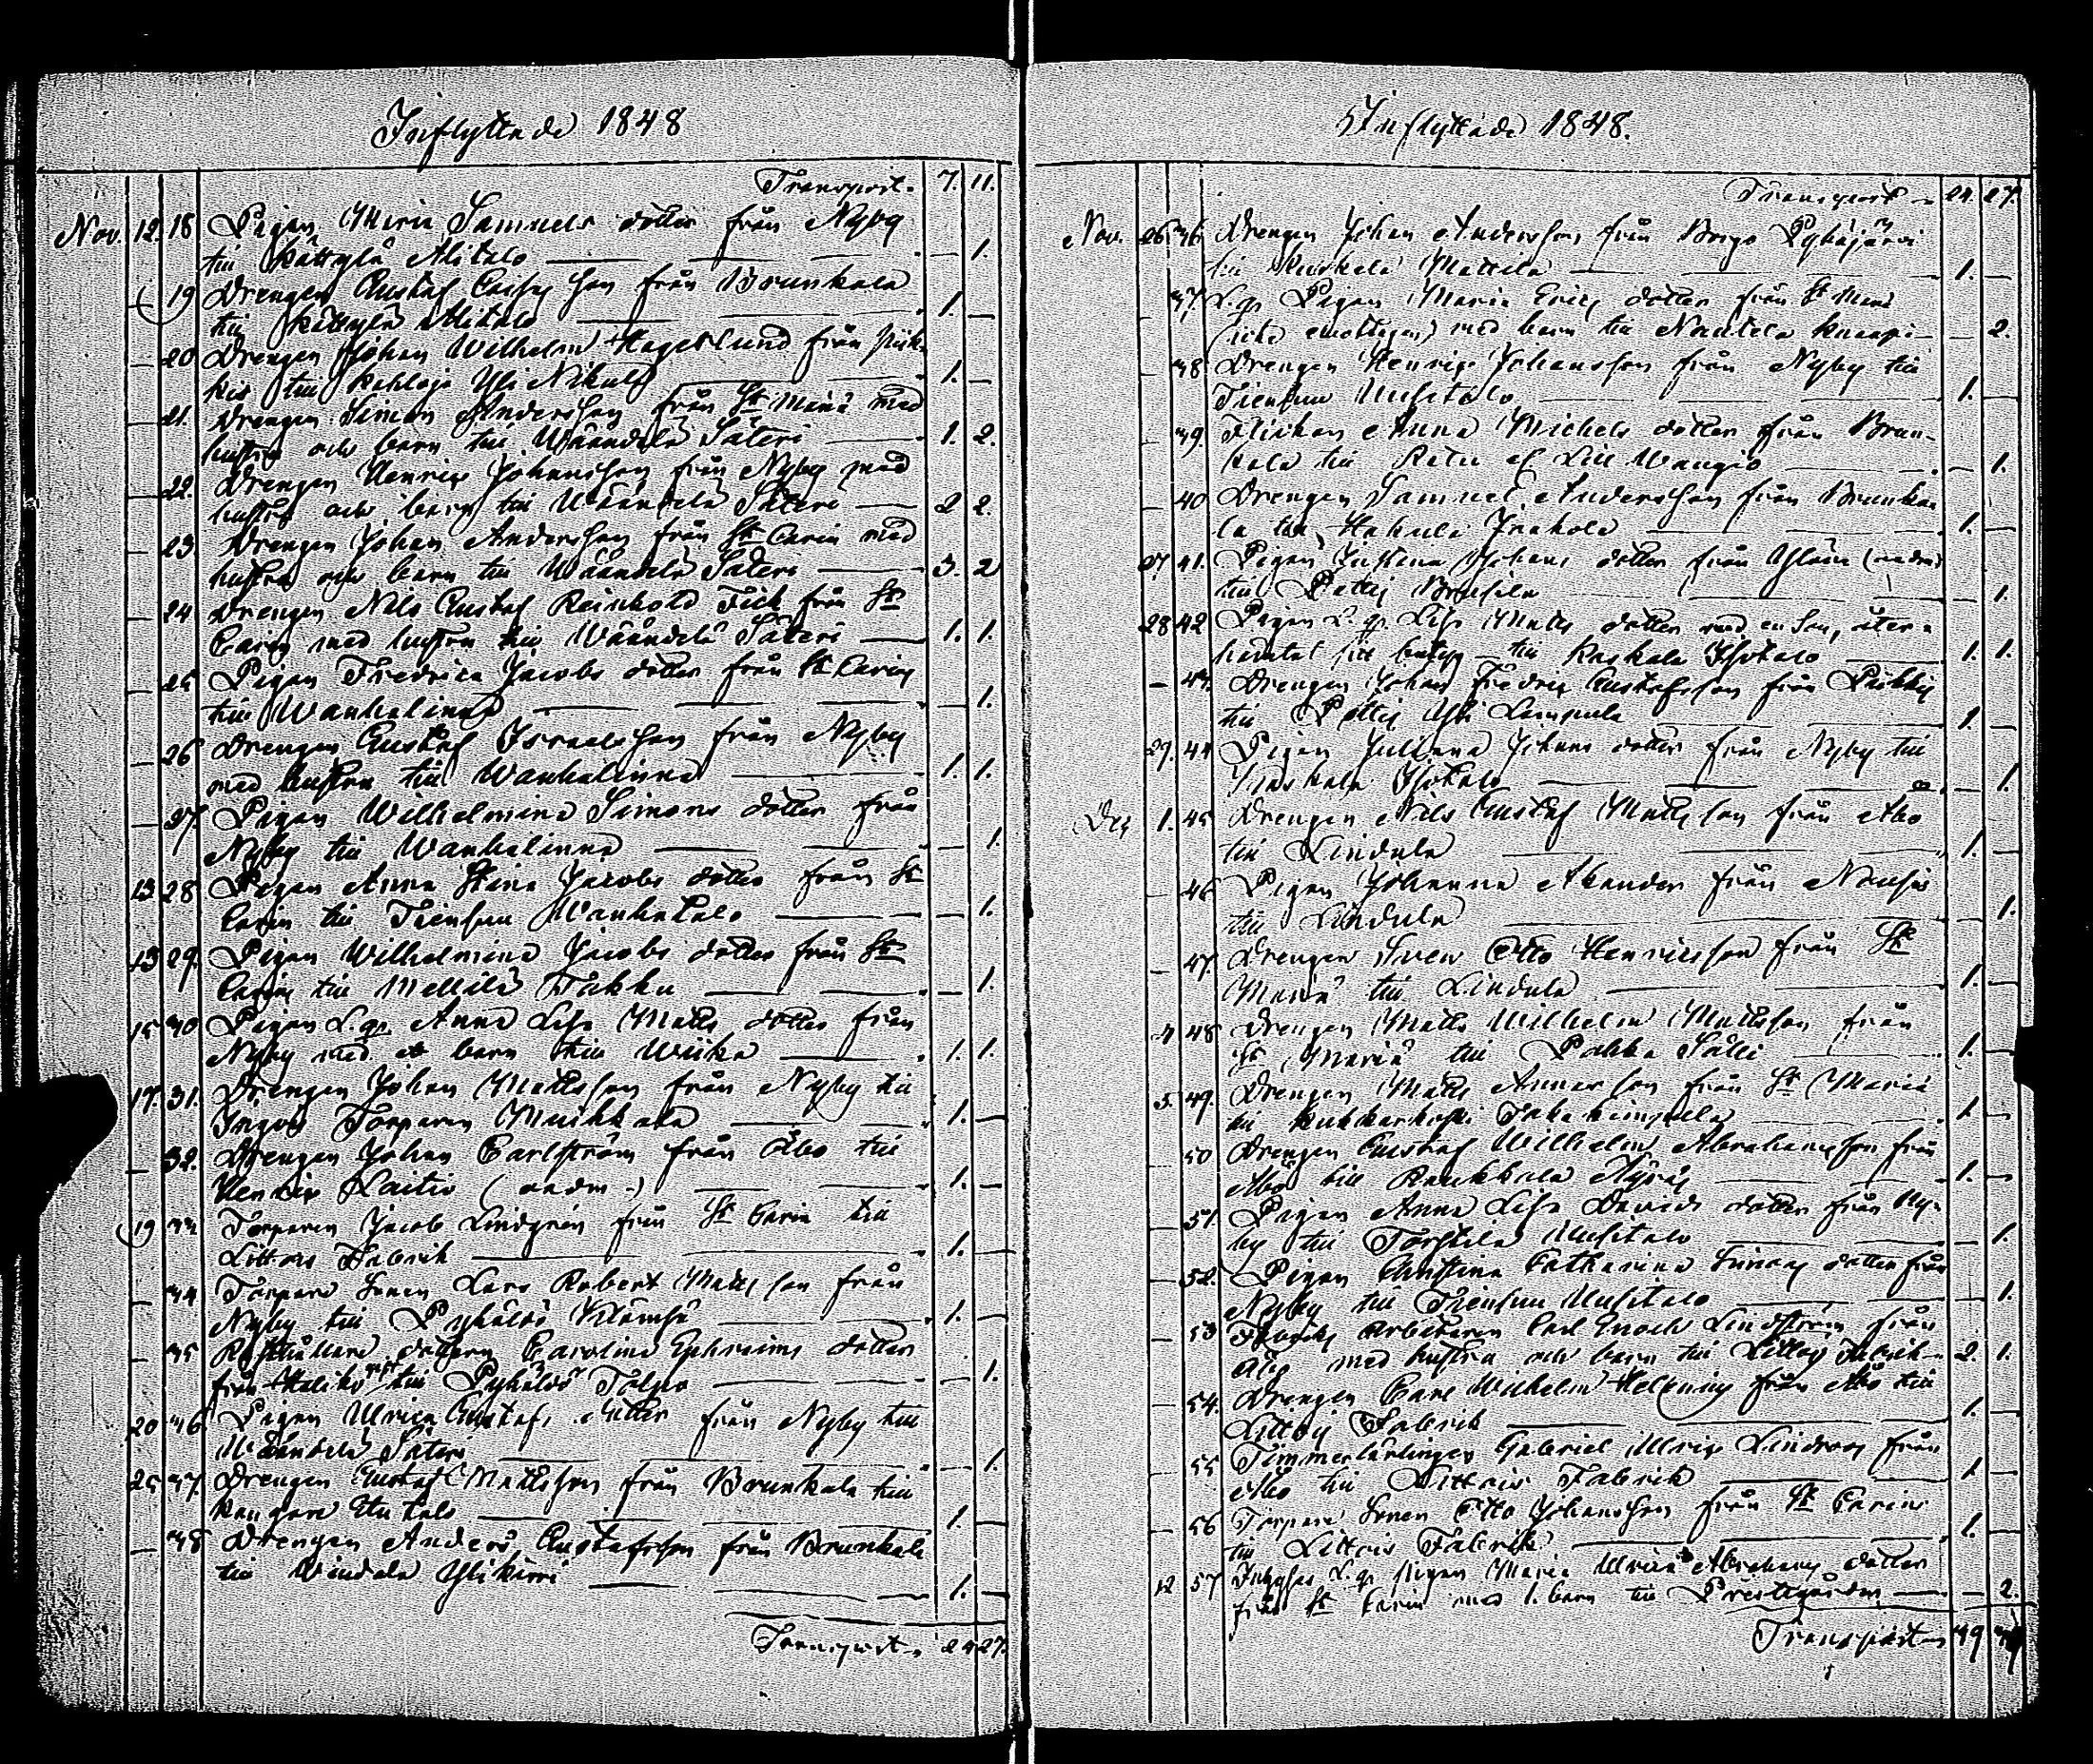 Inflyttade 1848
Transport. 7. 11.
Nov. 12. 18 Pigan Maria Samuels dotter från Nyby
till Kättylä Alitalo — 1.
19 Drengen Gustaf son från Brunkala
till Kättylä Alitalo 1. —
— 20 Drengen Johan Wilhelm Hagerlund från Piik-
kis till Kahloja Yli Nikula 1. —
— 21. Drengen Simon Andersson från St Mariæ med
hustru och barn till Wääntelä Säteri 1. 2.
— 22. Drengen Henric Johansson från Nyby med
hustru och barn till Wääntelä Säteri 2 2.
— 23 Drengen Johan Andersson från St Carin med
hustru och barn till Wääntelä Säteri 3. 2
— 24 Drengen Nils Gustaf Reinhold Fick från St
Carin med hustru till Wääntelä Säteri 1. 1.
— 25 Pigan Fredrica Jacobs dotter från St Carin
till Wanhalinna — 1.
— 26 Drengen Gustaf Israelsson från Nyby
med hustru till Wanhalinna 1. 1.
— 27 Pigan Wilhelmina Simons dotter från
Nyby till Wanhalinna — 1.
13 28 Pigan Anna Stina Jacobs dotter från St
Carin till Tiensuu Wanhatalo — 1.
13 29. Pigan Wilhelmina Jacobs dotter från St
Carin till Mellilä Takku — 1.
15 30 Pigan L. qp. Anna Lisa Matts dotter från
Nyby med et barn till Wiika 1. 1.
17. 31. Drengen Johan Mattsson från Nyby till
Ingois Torparen Muikkala 1. —
— 32. Drengen Johan Carlström från Åbo till
Laitio 1. —
19 33 Torparen Jacob Lindgrén från St Carin till
Littois Fabrik 1. —
— 34 Torpare Sonen Lars Robert Matts son från
Nyby till Pyhältö 1. —
— 35 Rusthållare dottern Carolina Ephraims dotter
från Haliko till Pyhältö Tölpo — 1.
20 36 Pigan Ulrica Gustafs dotter från Nyby till
Wääntelä Säteri — 1.
25 37. Drengen Gustaf Mattsson från Brunkala till
Kangare Uutalo 1. —
— 38 Drengen Anders Gustafsson från Brunkala
till Windala Ylikirri 1. —
Transport. 24 27.
Inflyttade 1848.
Transport 24. 27.
Nov. 26 36 Drengen Johan Andersson från Borgo Pyhäjärvi
till Mattila 1. —
37. L. qp Pigan Maria Erics dotter från St Mariæ
med barn till Nautela Knaapi — 2.
— 38 Drengen Henric Johansson från Nyby till
Tiensuu Uusitalo 1. —
— 39 Flickan Anna Michels dotter från Brun-
kala till Ratu af Lill Wangio — 1.
— 40 Drengen Samuel Andersson från Brunka-
la till Hakula Jaakola 1. —
27 41. Pigan Justina Johans dotter från Yläne
till Pettis — 1.
28 42 Pigan L. qp Lisa Matts dotter med en son, åter-
till Isotalo 1. 1.
— 43. Drengen Johan Fredric Gustafsson från Piikkis
till Pettis Yli Lempula 1. —
29. 44 Pigan Juliana Johans dotter från Nyby till
Isotalo — 1.
Dec 1. 45 Drengen Nils Gustaf Matts son från Åbo
till Lindula 1. —
— 46 Pigan Johanna Akander från Nousis
till Lindula — 1.
— 47. Drengen Sven Otto Henricsson från St
Mariæ till Lindula 1. —
4 48 Drengen Matts Wilhelm Mattsson från
St Mariæ till Pahka Sälli 1. —
5. 49. Drengen Matts Anners son från St Mariæ
till Kukkarkoski 1. —
— 50 Drengen Gustaf Wilhelm Abrahamsson från
Åbo till Raukkala 1. —
— 51. Pigan Anna Lisa Davids dotter från Ny-
by till Torstila Uusitalo — 1.
— 52. Pigan Christina Catharina dotter från
Nyby till Tiensuu Uusitalo — 1.
— 53 Fabriks arbetaren Carl Enoch Lindström från
Åbo med hustru och barn till Littois Fabrik 2. 1.
— 54. Drengen Carl Wilhelm Helenius från Åbo till
Littois Fabrik 1. —
— 55 Timmerlärlingen Gabriel Ulric Lindroos från
Åbo till Littois Fabrik 1 —
— 56 Torpare Sonen Otto Johansson från St Carins
till Littois Fabrik 1. —
12 57 Inhyses L. qp Pigan Maria Ulrica Abrahams dotter
från St Carin med 1. barn till Prestegården — 2.
Transport 39